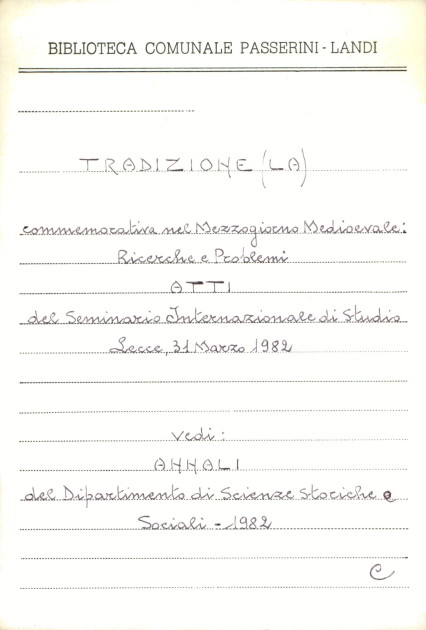 BIBLIOTECA COMUNALE PASSERINI - LANDI
TRADIZIONE (LA)
commemorativa nel Mezzogiorno Medioevale:
Ricerche e Problemi
ATTI
del Seminario Internazionale di Studio
Lecce, 31 Marzo 1982
vedi:
ANNALI
del Dipartimento di Scienze Storiche e
Sociali - 1982
C